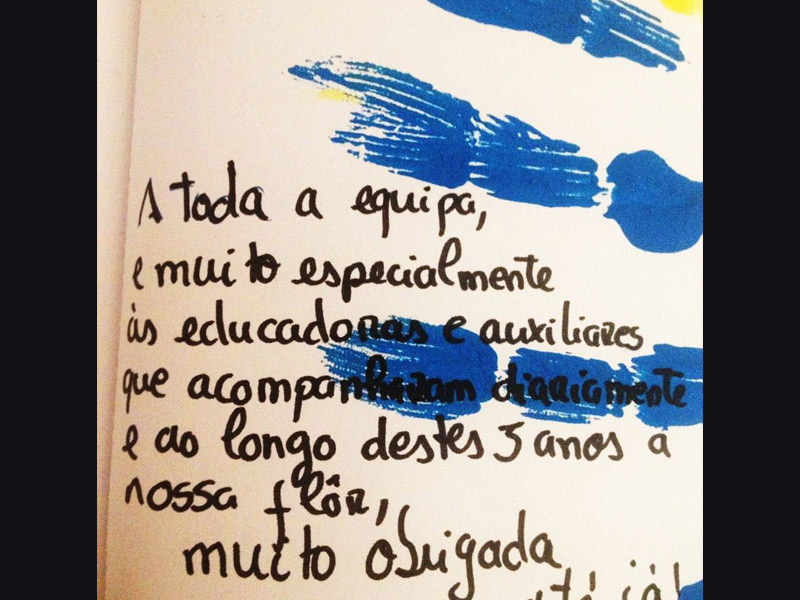 A toda a equipa,
e muito especialmente
às educadoras e auxiliares
que acompanharam diariamente
e ao longo destes 3 anos a
nossa flôr,
muito obrigada
até já!